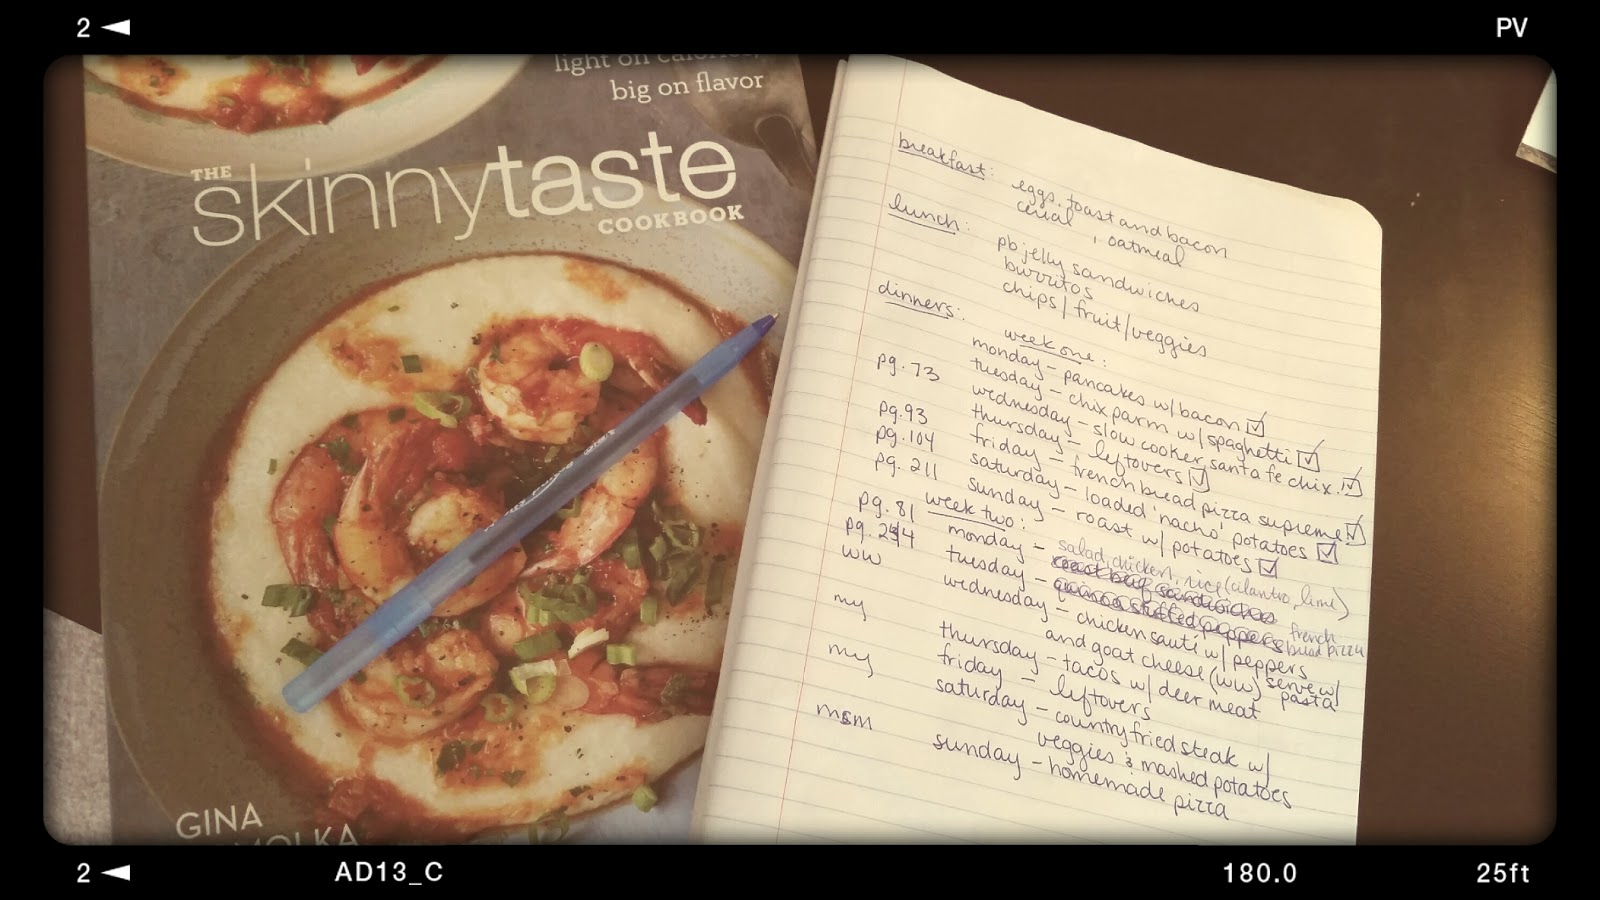 2
PV
light on calories,
big on flavor
THE
skinnytaste
COOKBOOK
GINA
breakfast: eggs, toast and bacon
cerial, oatmeal
lunch: pb jelly sandwiches
burritos
chips/fruit/veggies
dinners:
week one:
monday - pancakes w/ bacon ☑
pg. 73 tuesday - chix parm w/ spaghetti ☑
wednesday - slow cooker santa fe chix. ☑
pg. 93 thursday - leftovers ☑
pg. 104 friday - french bread pizza supreme ☑
pg. 211 saturday - loaded 'nacho' potatoes ☑
sunday - roast w/ potatoes ☑
week two:
pg. 81 monday - salad, chicken, rice (cilantro, lime)
pg. 244 tuesday - french bread pizza
ww wednesday - chicken sauté w/ peppers
and goat cheese (ww) serve w/ pasta
my thursday - tacos w/ deer meat
friday - leftovers
my saturday - country fried steak w/
veggies & mashed potatoes
msm sunday - homemade pizza
2
AD13_C
180.0
25ft